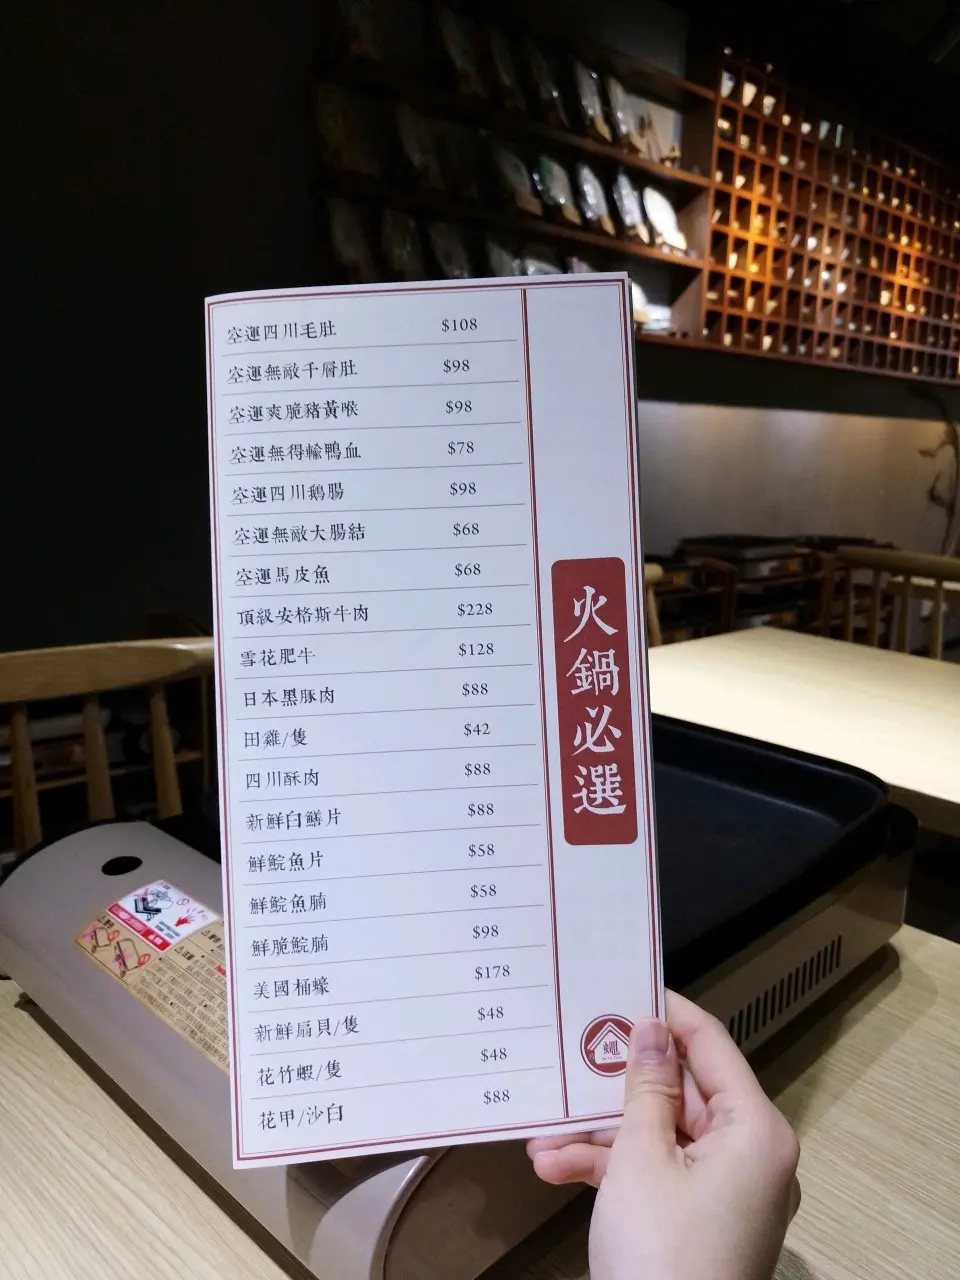 空運四川毛肚 $108
空運無敵千層肚 $98
空運爽脆豬黃喉 $98
空運無得輸鴨血 $78
空運四川鵝腸 $98
空運無敵大腸結 $68
空運馬皮魚 $68
頂級安格斯牛肉 $228
雪花肥牛 $128
日本黑豚肉 $88
田雞/隻 $42
四川酥肉 $88
新鮮白鱔片 $88
鮮鯇魚片 $58
鮮鯇魚腩 $58
鮮脆鯇腩 $98
美國桶蠔 $178
新鮮扇貝/隻 $48
花竹蝦/隻 $48
花甲/沙白 $88
火鍋必選